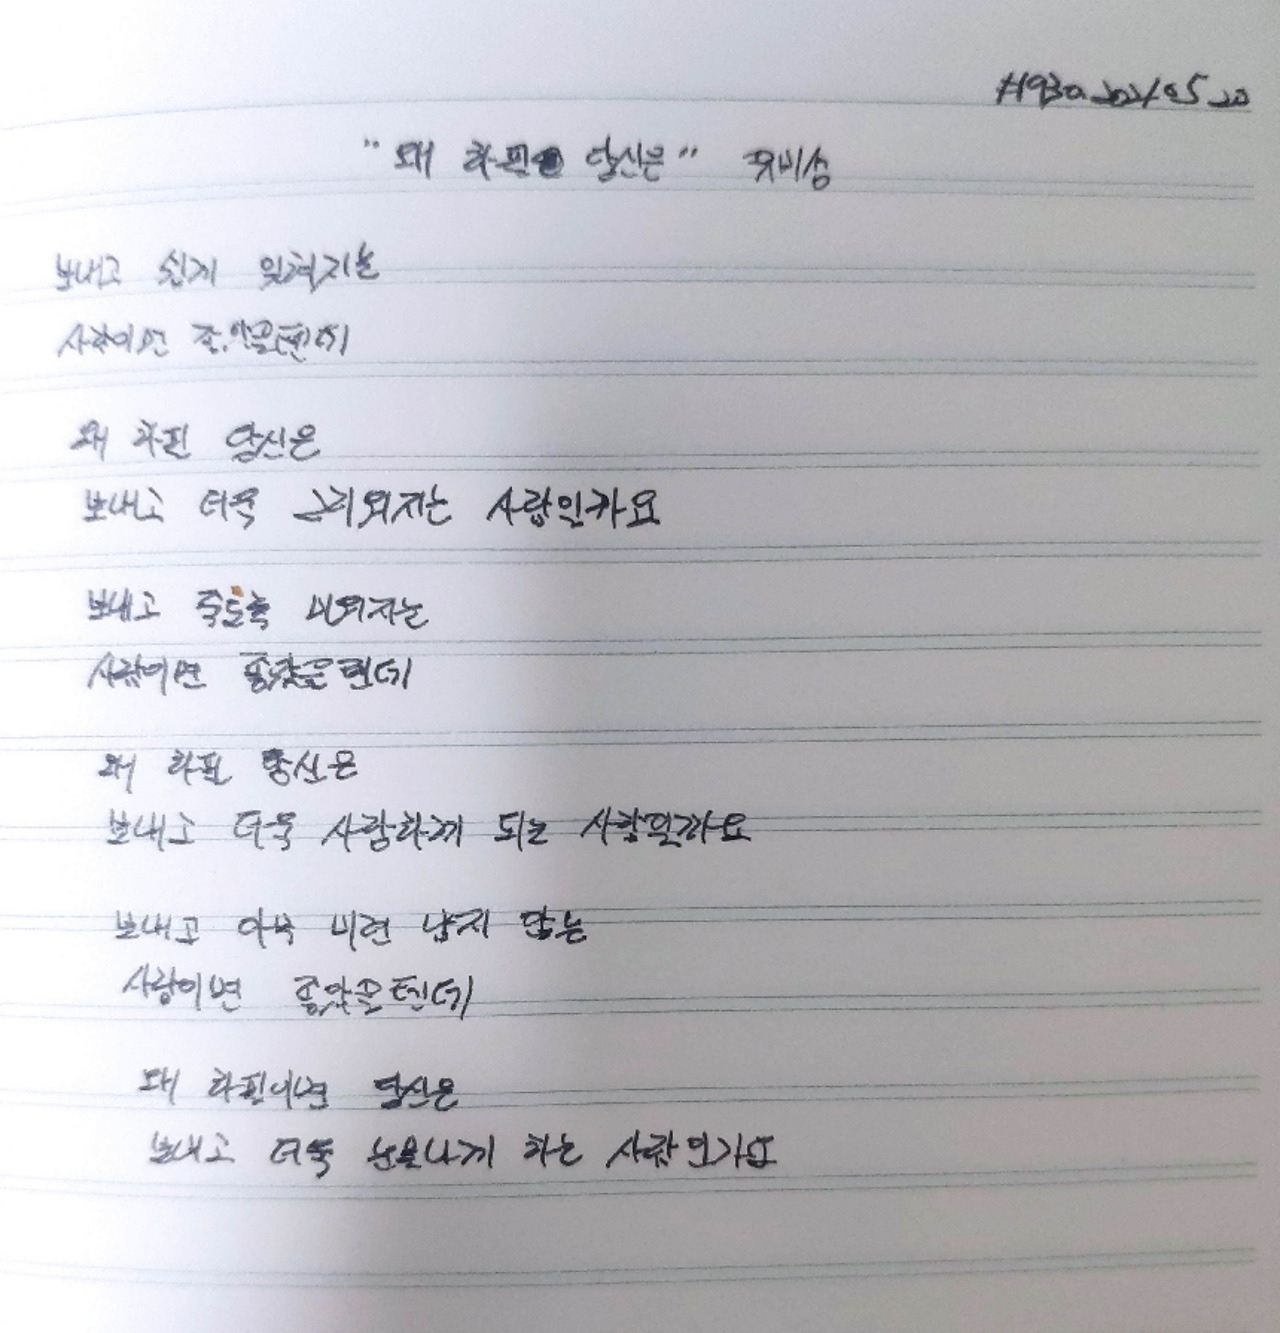 #930 2021 05 20
"왜 하필 당신은"
보내고 쉽게 잊혀지는
사람이면 좋았을텐데
왜 하필 당신은
보내고 더욱 그리워지는 사람인가요
보내고 죽도록 미워지는
사람이면 좋았을텐데
왜 하필 당신은
보내고 더욱 사랑하게 되는 사람인가요
보내고 아무 미련 남지 않는
사람이면 좋았을텐데
왜 하필이면 당신은
보내고 더욱 눈물나게 하는 사람인가요